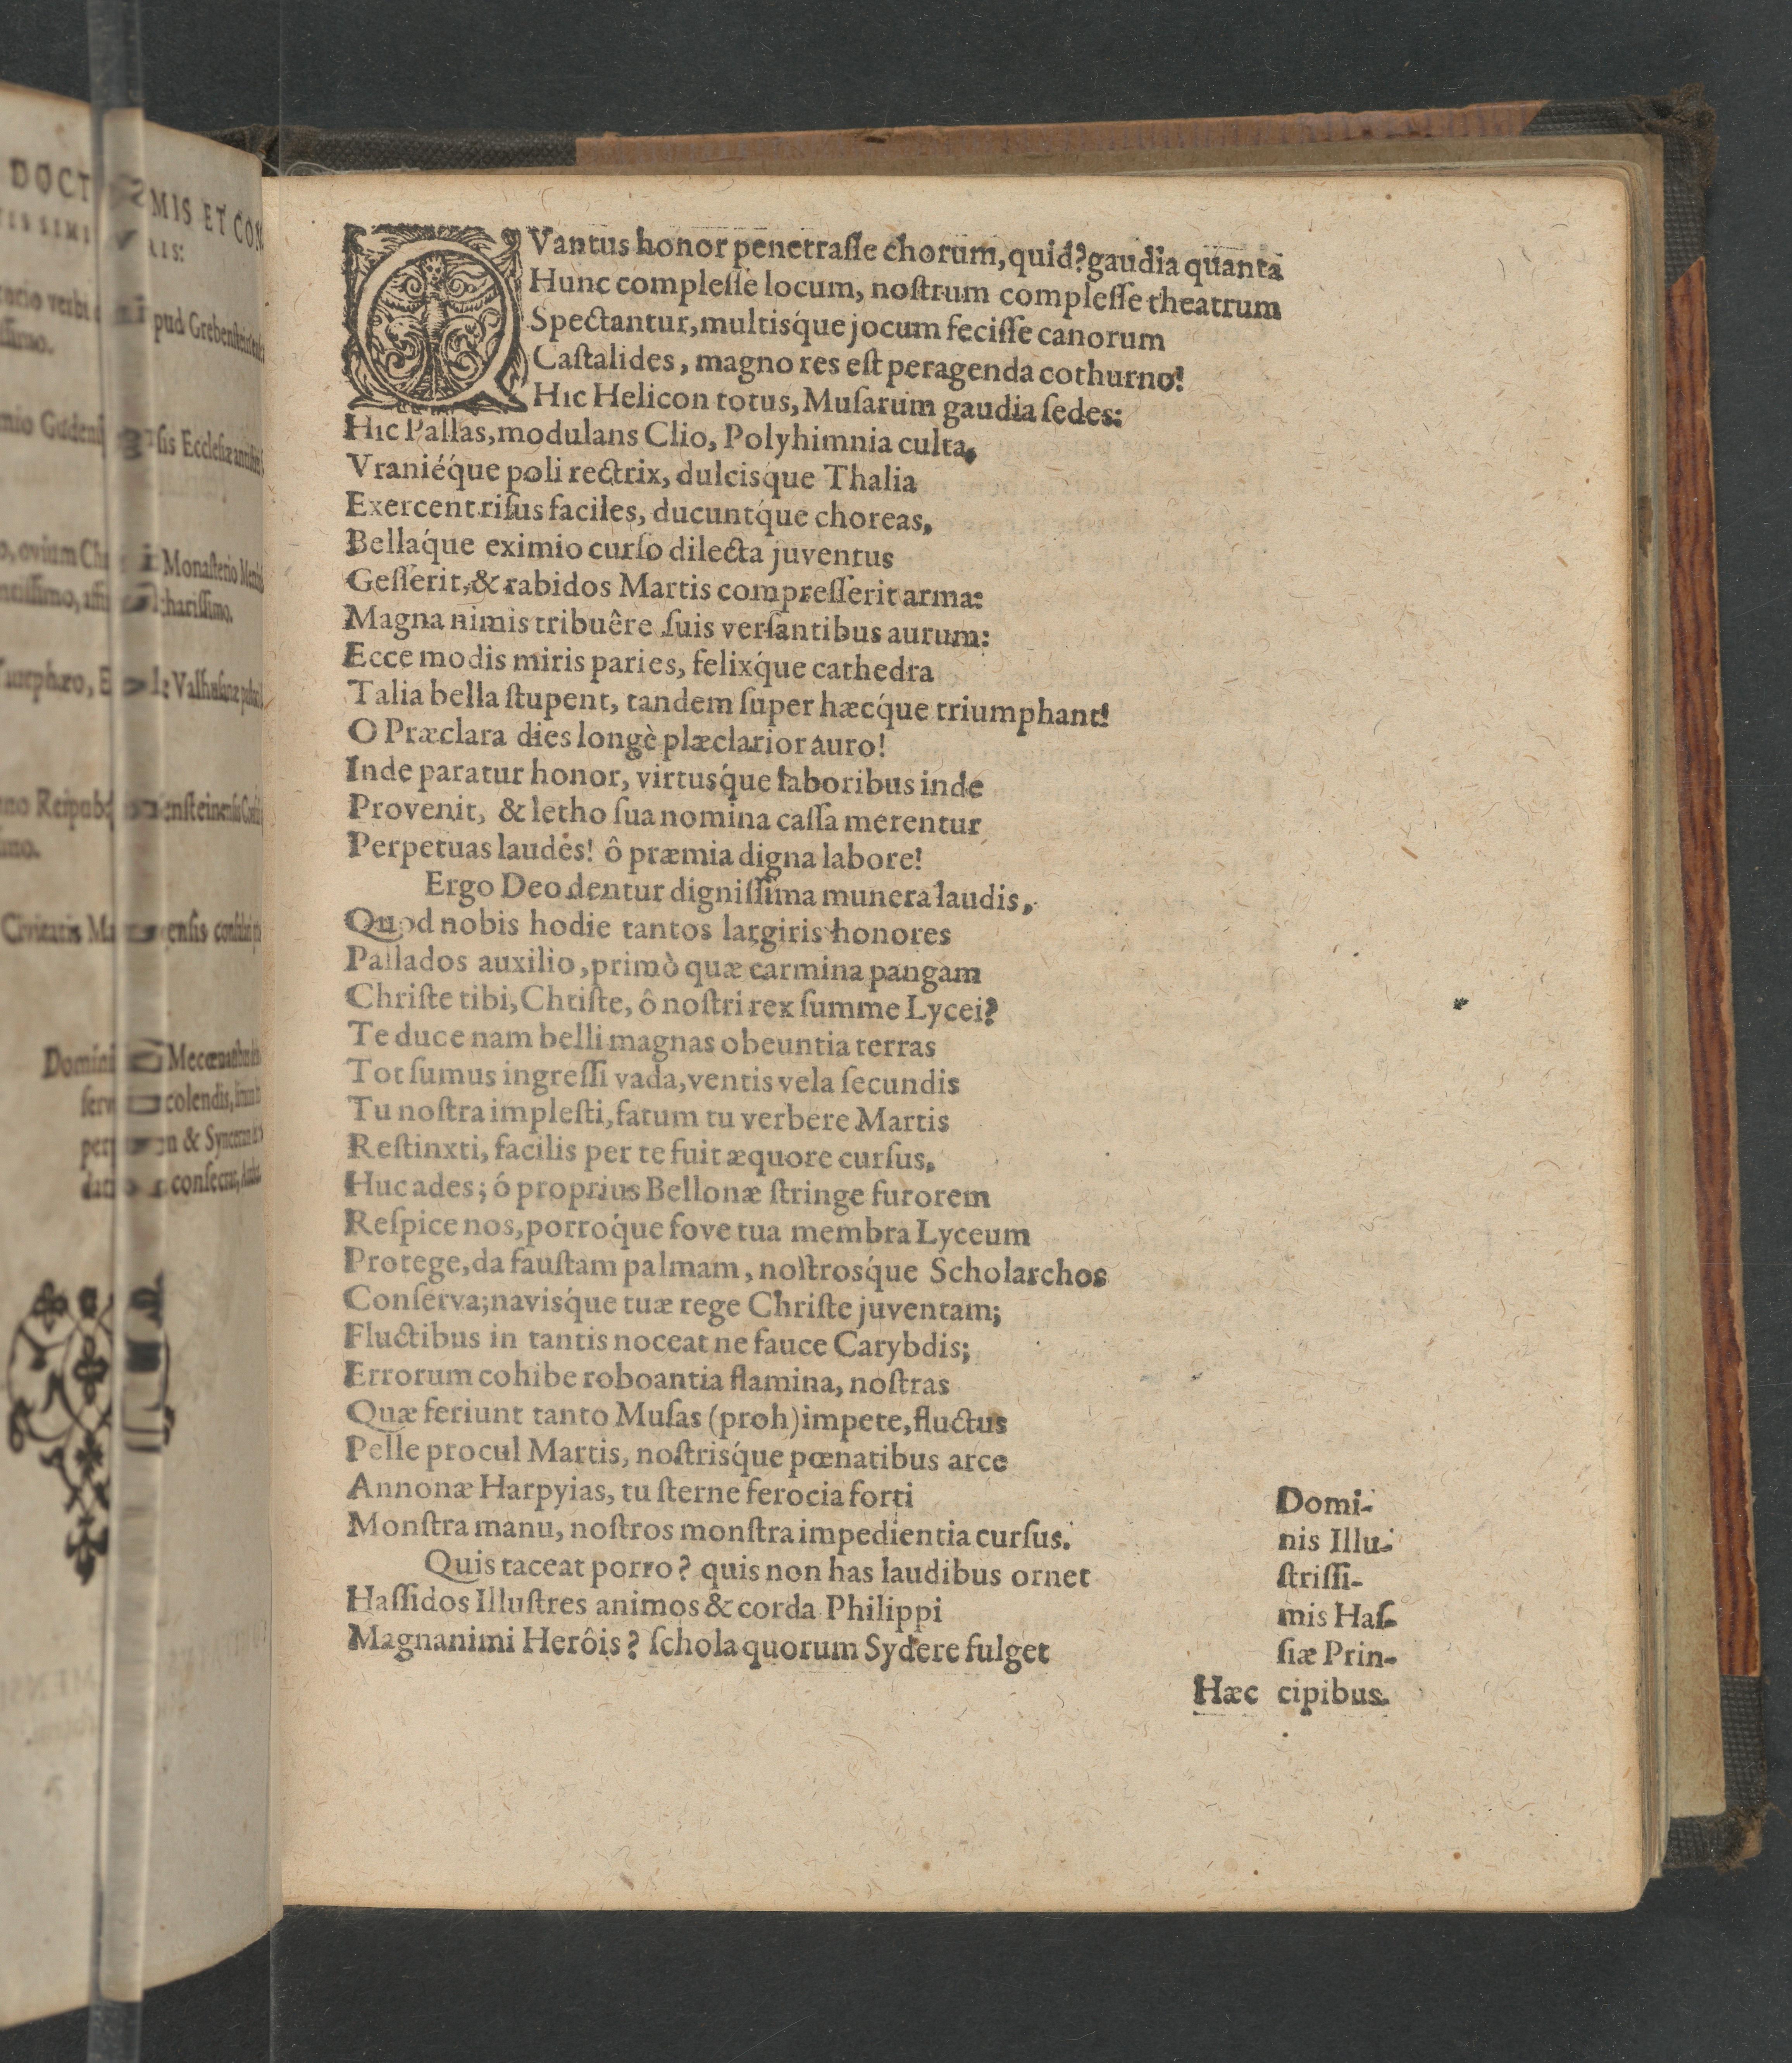 DOCT MIS ET CON
TISSIMI RIS:
pud Grebenstein
sis Ecclesiæ
o, ovium Ch Monasterio
ntissimo, charissimo.
Valhusanæ
no Reipub ensteinensis
simo.
Civitatis Ma ensis
Domini Mecœnatibus
colendis,
per n & Synceram
consecrat,
QVantus honor penetraſſe chorum, quid? gaudia quanta
Hunc compleſſe locum, noſtrum compleſſe theatrum
Spectantur, multisq́ue jocum feciſſe canorum
Caſtalides, magno res eſt peragenda cothurno!
Hic Helicon totus, Muſarum gaudia ſedes:
Hic Pallas, modulans Clio, Polyhimnia culta,
Vraniéq́ue poli rectrix, dulcisque Thalia
Exercent riſus faciles, ducuntq́ue choreas,
Bellaq́ue eximio curſo dilecta juventus
Geſſerit, & rabidos Martis compreſſerit arma:
Magna nimis tribuêre ſuis verſantibus aurum:
Ecce modis miris paries, felixq́ue cathedra
Talia bella ſtupent, tandem ſuper hæcq́ue triumphant!
O Præclara dies longè plæclarior auro!
Inde paratur honor, virtusq́ue laboribus inde
Provenit, & letho ſua nomina caſſa merentur
Perpetuas laudes! ô præmia digna labore!
Ergo Deo dentur digniſſima munera laudis,
Quod nobis hodie tantos largiris honores
Pallados auxilio, primò quæ carmina pangam
Chriſte tibi, Chtiſte, ô noſtri rex ſumme Lycei?
Te duce nam belli magnas obeuntia terras
Tot ſumus ingreſſi vada, ventis vela ſecundis
Tu noſtra impleſti, fatum tu verbere Martis
Reſtinxti, facilis per te fuit æquore curſus,
Huc ades; ó proprius Bellonæ ſtringe furorem
Reſpice nos, porroq́ue fove tua membra Lyceum
Protege, da fauſtam palmam, noſtrosq́ue Scholarchos
Conſerva; navisq́ue tuæ rege Chriſte juventam;
Fluctibus in tantis noceat ne fauce Carybdis;
Errorum cohibe roboantia flamina, noſtras
Quæ feriunt tanto Muſas (proh) impete, fluctus
Pelle procul Martis, noſtrisq́ue pœnatibus arce
Annonæ Harpyias, tu ſterne ferocia forti
Monſtra manu, noſtros monſtra impedientia curſus.
Quis taceat porro? quis non has laudibus ornet
Haſſidos Illuſtres animos & corda Philippi
Magnanimi Herôis? ſchola quorum Sydere fulget
Domi-
nis Illu-
ſtriſſi-
mis Haſ-
ſiæ Prin-
cipibus.
Hæc